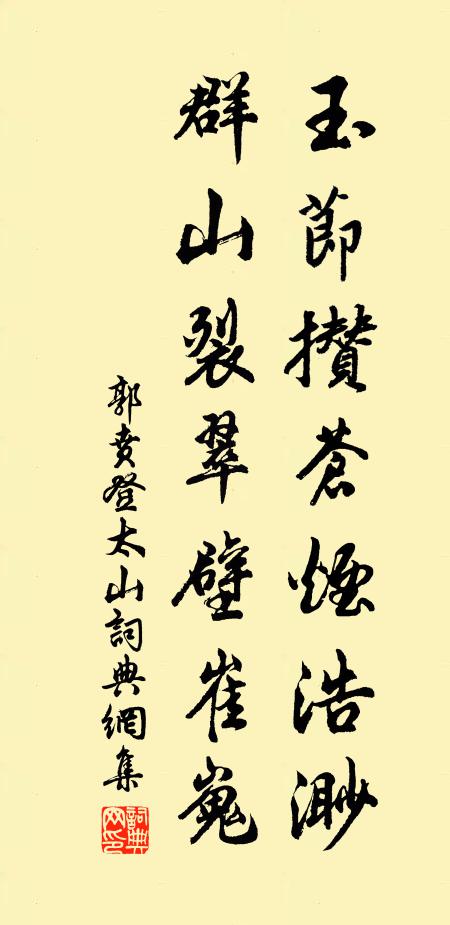 玉節攢蒼煙浩渺
群山裂翠壁崔嵬
郭賁登太山詞典網集
詞典网印